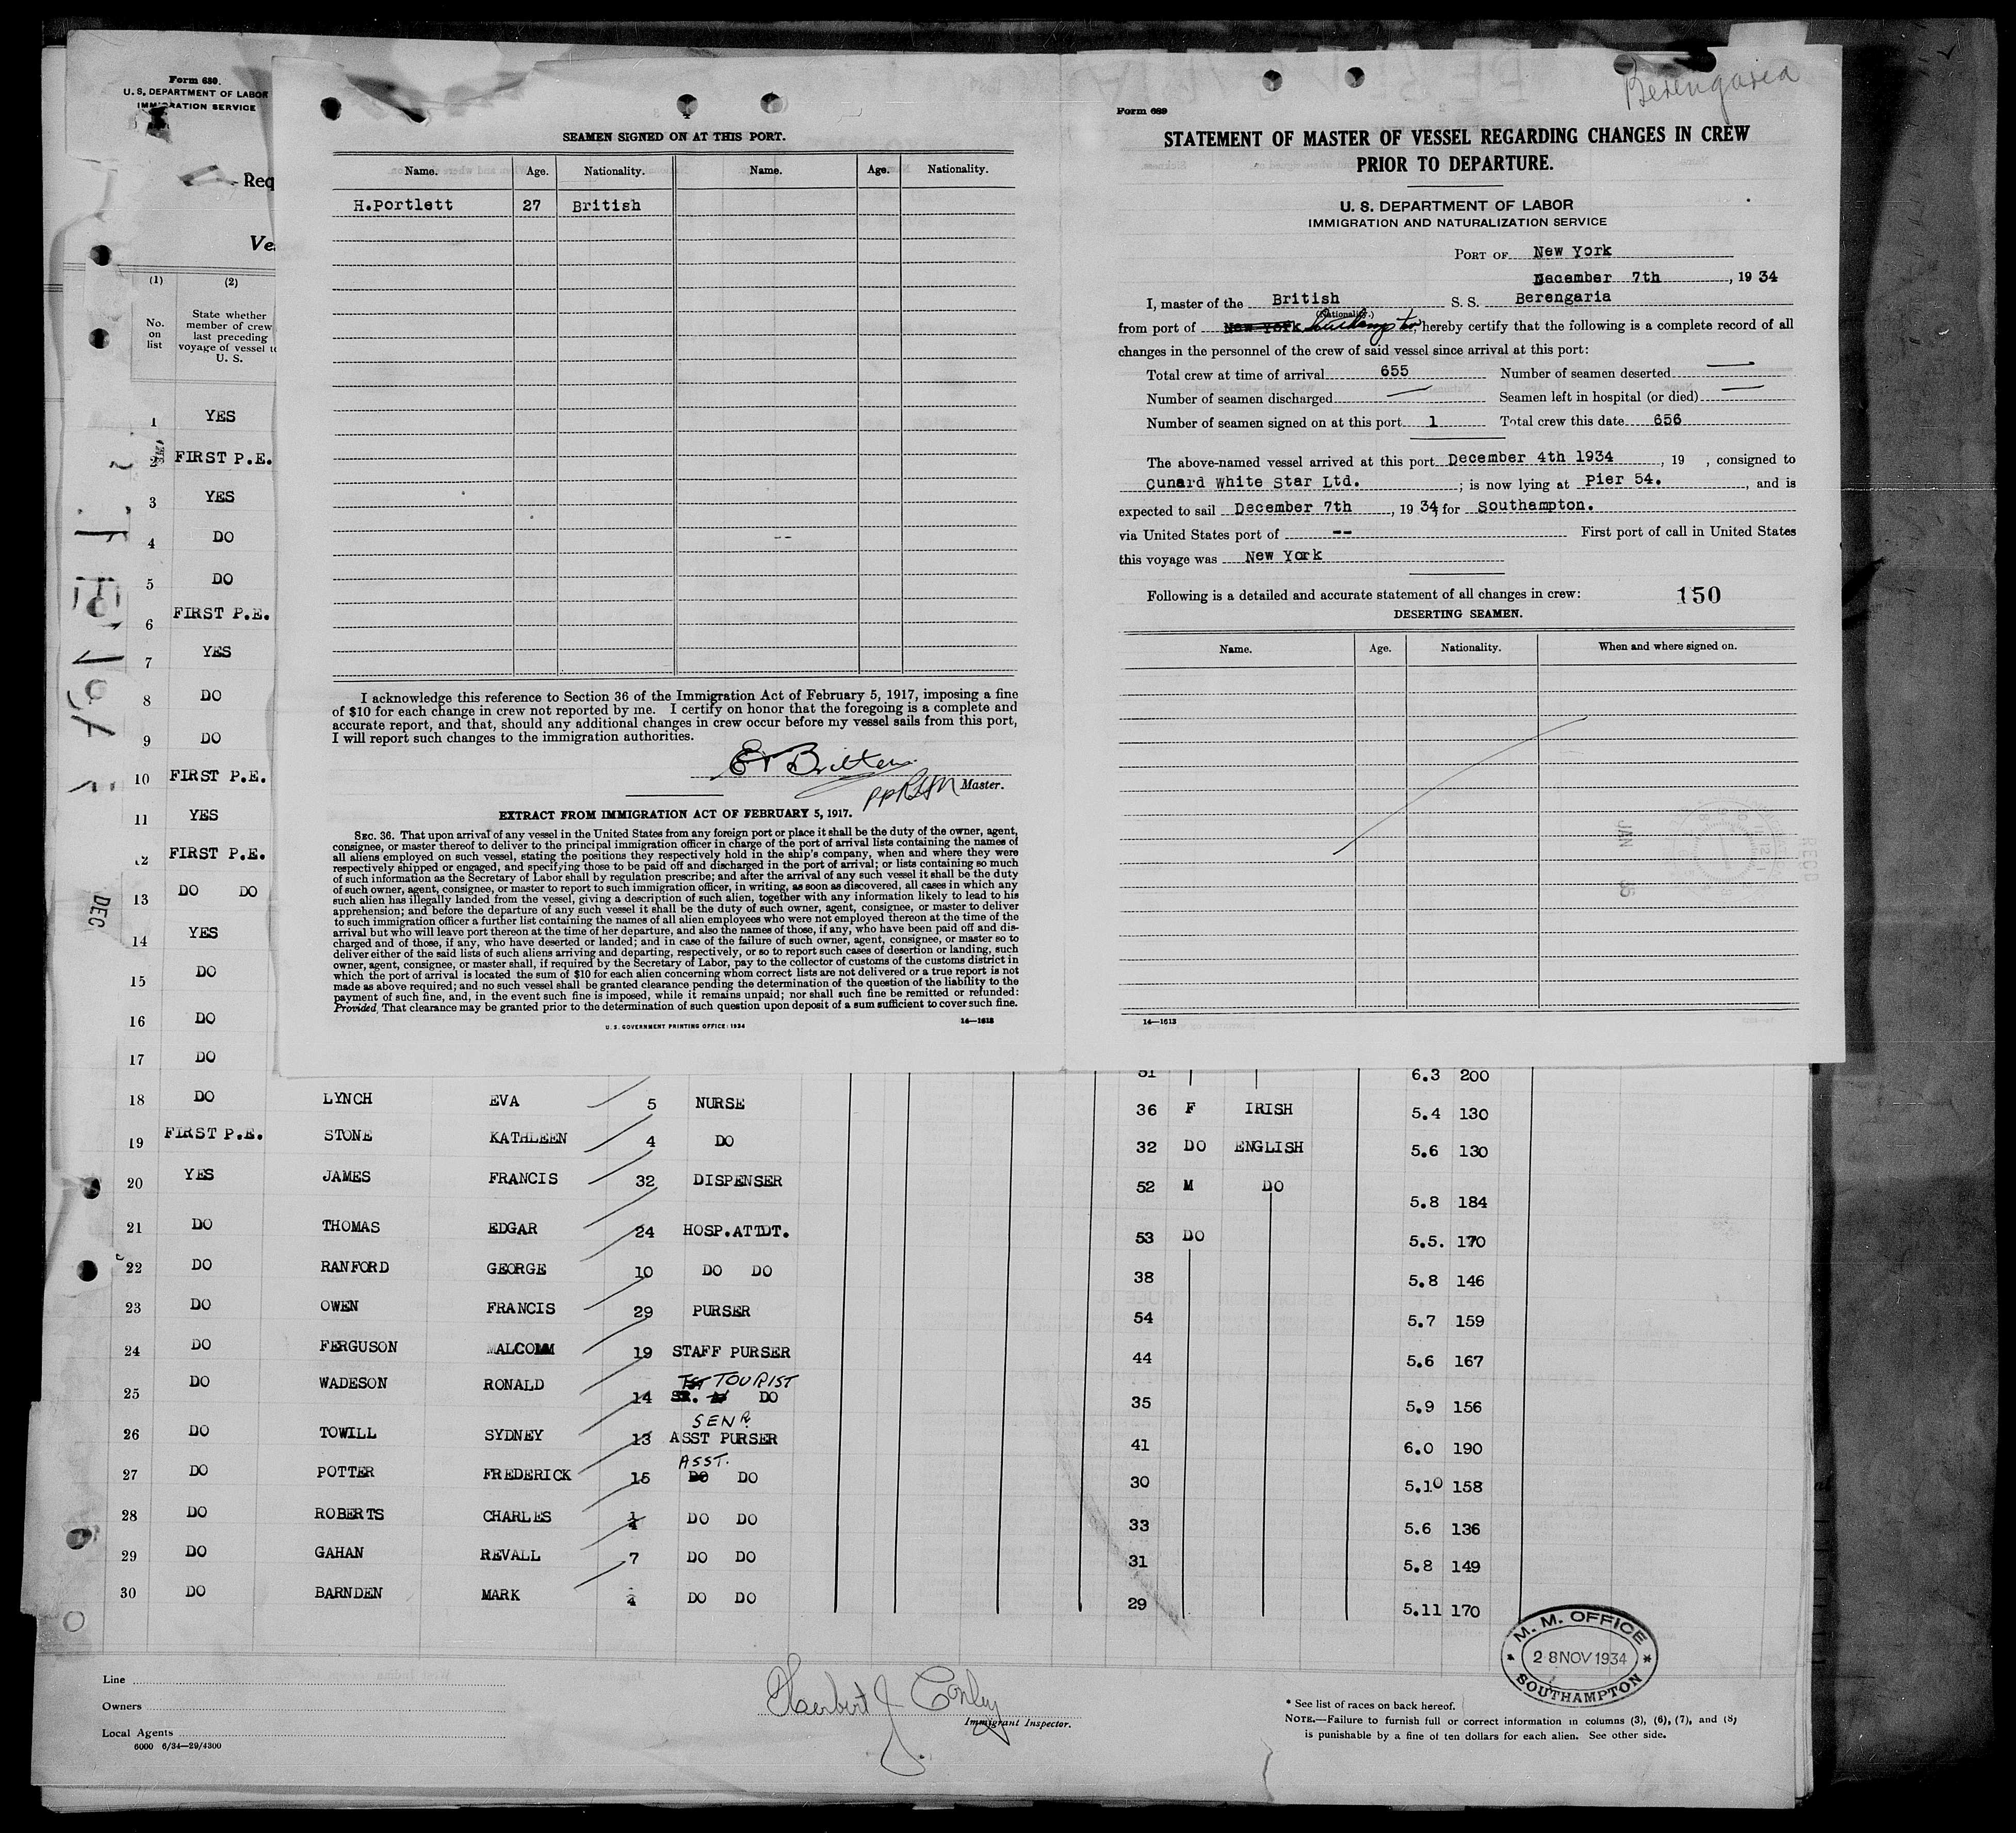 Form 680.
U. S. DEPARTMENT OF LABOR
IMMIGRATION SERVICE
Req
Ve
(1) (2)
No. on list
State whether
member of crew
last preceding
voyage of vessel to
U. S.
1 YES
2 FIRST P.E.
3 YES
4 DO
5 DO
6 FIRST P.E.
7 YES
8 DO
9 DO
10 FIRST P.E.
11 YES
12 FIRST P.E.
13 DO DO
14 YES
15 DO
16 DO
17 DO
DEC
SEAMEN SIGNED ON AT THIS PORT.
Name. Age. Nationality. Name. Age. Nationality.
H.Portlett 27 British
--
I acknowledge this reference to Section 36 of the Immigration Act of February 5, 1917, imposing a fine
of $10 for each change in crew not reported by me. I certify on honor that the foregoing is a complete and
accurate report, and that, should any additional changes in crew occur before my vessel sails from this port,
I will report such changes to the immigration authorities.
Britten
Master.
EXTRACT FROM IMMIGRATION ACT OF FEBRUARY 5, 1917.
SEC. 36. That upon arrival of any vessel in the United States from any foreign port or place it shall be the duty of the owner, agent,
consignee, or master thereof to deliver to the principal immigration officer in charge of the port of arrival lists containing the names of
all aliens employed on such vessel, stating the positions they respectively hold in the ship's company, when and where they were
respectively shipped or engaged, and specifying those to be paid off and discharged in the port of arrival; or lists containing so much
of such information as the Secretary of Labor shall by regulation prescribe; and after the arrival of any such vessel it shall be the duty
of such owner, agent, consignee, or master to report to such immigration officer, in writing, as soon as discovered, all cases in which any
such alien has illegally landed from the vessel, giving a description of such alien, together with any information likely to lead to his
apprehension; and before the departure of any such vessel it shall be the duty of such owner, agent, consignee, or master to deliver
to such immigration officer a further list containing the names of all alien employees who were not employed thereon at the time of the
arrival but who will leave port thereon at the time of her departure, and also the names of those, if any, who have been paid off and dis-
charged and of those, if any, who have deserted or landed; and in case of the failure of such owner, agent, consignee, or master so to
deliver either of the said lists of such aliens arriving and departing, respectively, or so to report such cases of desertion or landing, such
owner, agent, consignee, or master shall, if required by the Secretary of Labor, pay to the collector of customs of the customs district in
which the port of arrival is located the sum of $10 for each alien concerning whom correct lists are not delivered or a true report is not
made as above required; and no such vessel shall be granted clearance pending the determination of the question of the liability to the
payment of such fine, and, in the event such fine is imposed, while it remains unpaid; nor shall such fine be remitted or refunded:
Provided, That clearance may be granted prior to the determination of such question upon deposit of a sum sufficient to cover such fine.
U. S. GOVERNMENT PRINTING OFFICE: 1934 14—1613
Berengaria
Form 689
STATEMENT OF MASTER OF VESSEL REGARDING CHANGES IN CREW
PRIOR TO DEPARTURE.
U. S. DEPARTMENT OF LABOR
IMMIGRATION AND NATURALIZATION SERVICE
PORT OF New York
December 7th, 1934
I, master of the British S. S. Berengaria
(Nationality.)
from port of New York, hereby certify that the following is a complete record of all
changes in the personnel of the crew of said vessel since arrival at this port:
Total crew at time of arrival 655 Number of seamen deserted —
Number of seamen discharged — Seamen left in hospital (or died) —
Number of seamen signed on at this port 1 Total crew this date 656
The above-named vessel arrived at this port December 4th 1934, 19 , consigned to
Cunard White Star Ltd. ; is now lying at Pier 54. , and is
expected to sail December 7th, 1934, for Southampton.
via United States port of -- First port of call in United States
this voyage was New York
Following is a detailed and accurate statement of all changes in crew: 150
DESERTING SEAMEN.
Name. Age. Nationality. When and where signed on.
14—1613
6.3 200
18 DO LYNCH EVA 5 NURSE 36 F IRISH 5.4 130
19 FIRST P.E. STONE KATHLEEN 4 DO 32 DO ENGLISH 5.6 130
20 YES JAMES FRANCIS 32 DISPENSER 52 M DO 5.8 184
21 DO THOMAS EDGAR 24 HOSP.ATTDT. 53 DO 5.5. 170
22 DO RANFORD GEORGE 10 DO DO 38 5.8 146
23 DO OWEN FRANCIS 29 PURSER 54 5.7 159
24 DO FERGUSON MALCOLM 19 STAFF PURSER 44 5.6 167
TOURIST
25 DO WADESON RONALD 14 SR. DO 35 5.9 156
SENR
26 DO TOWILL SYDNEY 13 ASST PURSER 41 6.0 190
ASST.
27 DO POTTER FREDERICK 15 DO DO 30 5.10 158
28 DO ROBERTS CHARLES DO DO 33 5.6 136
29 DO GAHAN REVALL 7 DO DO 31 5.8 149
30 DO BARNDEN MARK DO DO 29 5.11 170
M. M. OFFICE
* 28 NOV 1934 *
SOUTHAMPTON
Line
Owners
Local Agents
6000 6/34—29/4300
Herbert J. Conley
Immigrant Inspector.
* See list of races on back hereof.
NOTE.—Failure to furnish full or correct information in columns (3), (6), (7), and (8)
is punishable by a fine of ten dollars for each alien. See other side.